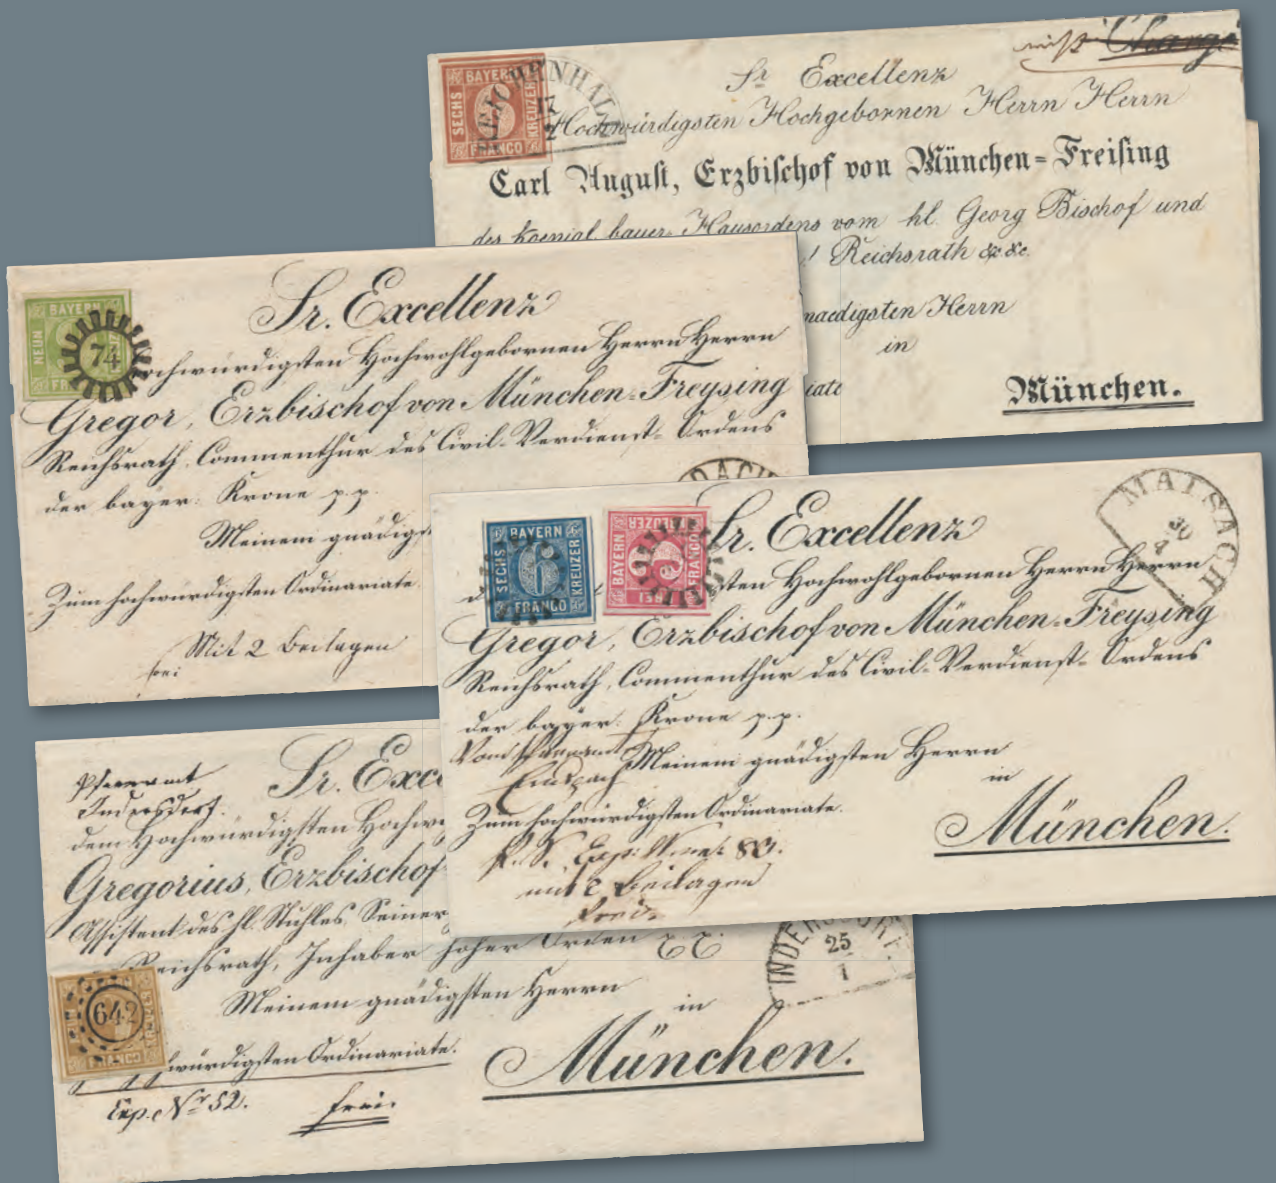 nicht Charge
BAYERN
SECHS
KREUZER
FRANCO
REICHENHALL
17
2
Sr Excellenz
Hochwürdigsten Hochgebornen Herrn Herrn
Carl August, Erzbischof von München=Freising
des koenigl. bayer. Hausordens vom hl. Georg Bischof und
! Reichsrath &c &c.
naedigsten Herrn
in
iate
München.
BAYERN
NEUN
74
Sr. Excellenz
ochwürdigsten Hochwohlgebornen Herrn Herrn
Gregor, Erzbischof von München=Freysing
Reichsrath, Commenthur des Civil=Verdienst=Ordens
der bayer: Krone p. p.
Meinem gnädigs
Zum hochwürdigsten Ordinariate
Mit 2 Beilagen
frei
DACH
BAYERN
SECHS
6
KREUZER
FRANCO
BAYERN
KREUZER
FRANCO
DREI
MAISACH
30
4
Sr. Excellenz
d sten Hochwohlgebornen Herrn Herrn
Gregor, Erzbischof von München=Freysing
Reichsrath, Commenthur des Civil=Verdienst=Ordens
der bayer: Krone p. p.
Vom Pfarramt
Meinem gnädigsten Herrn
in
Zum hochwürdigsten Ordinariate.
München.
mit 2 Beilagen
Pfarramt
Indersdorf.
Sr. Exce
dem Hochwürdigsten Hochw
Gregorius, Erzbischof
Assistent des hl. Stuhles, Seiner
Reichsrath, Inhaber hoher Orden
INDERSDORF
25
1
642
FRANCO
Meinem gnädigsten Herrn
in
würdigsten Ordinariate.
München.
Exp. Nr 52.
frei.